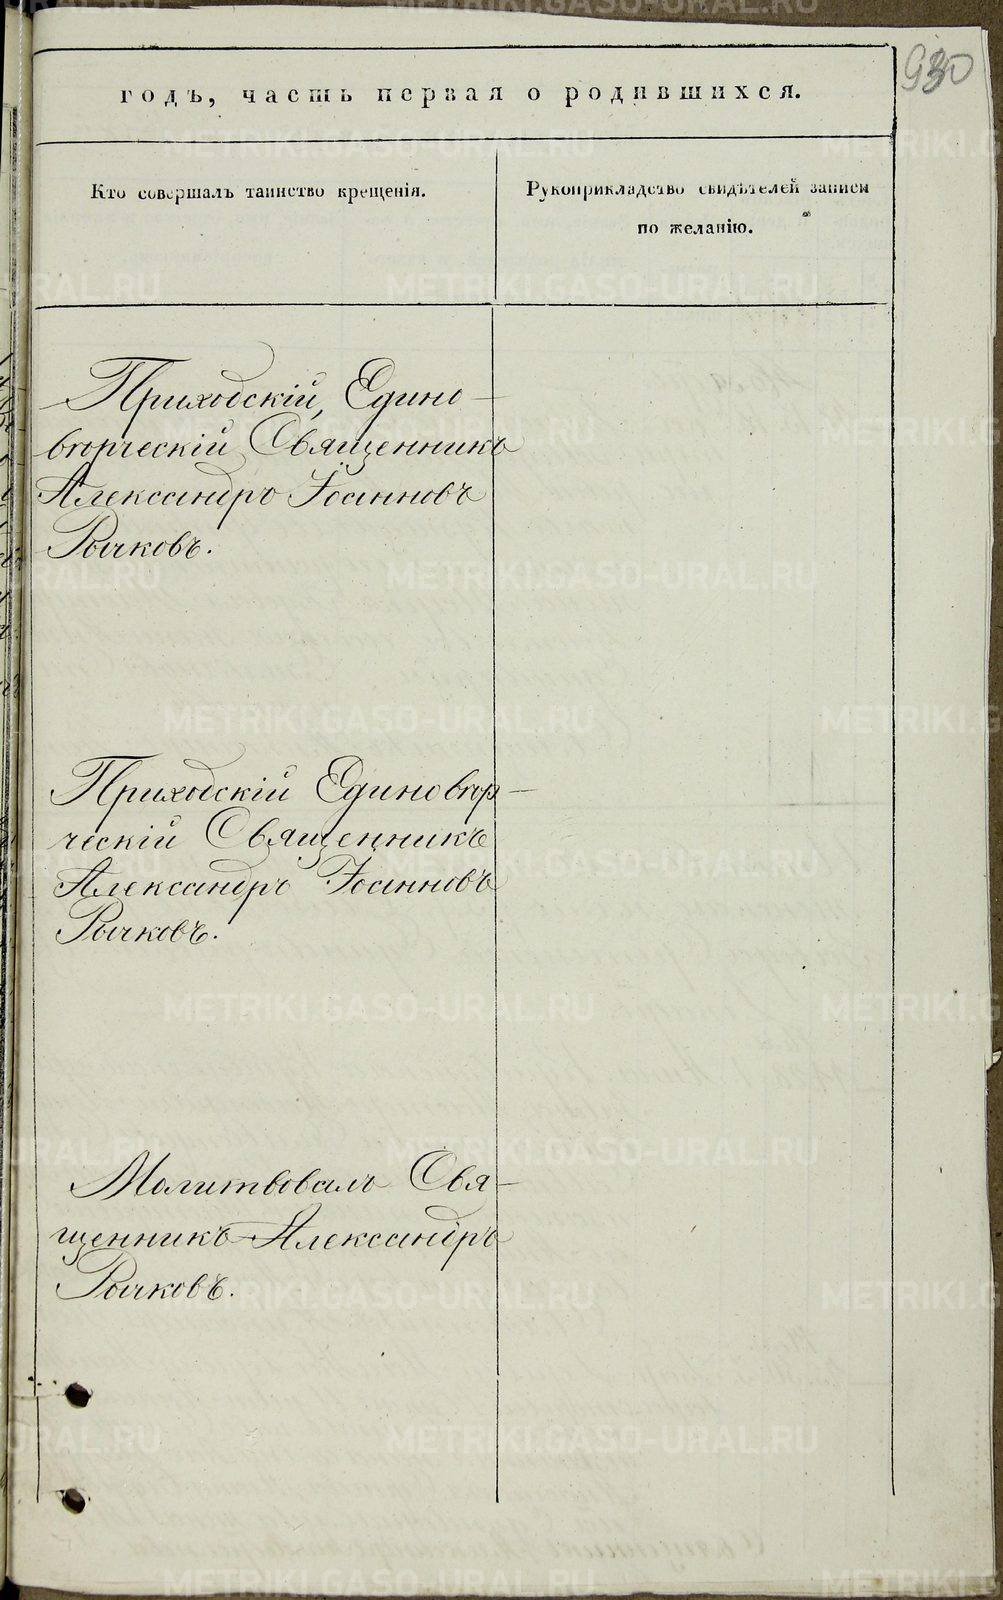 930
годъ, часть первая о родившихся.
Кто совершалъ таинство крещенія.
Рукоприкладство свидѣтелей записи
по желанію.
Приходскій, Едино-
вѣрческій Священникъ
Александръ Іоанновъ
Рычковъ.
Приходскій Единовѣр-
ческій Священникъ
Александръ Іоанновъ
Рычковъ.
Молитвовалъ Свя-
щенникъ Александръ
Рычковъ.
METRIKI.GASO-URAL.RU